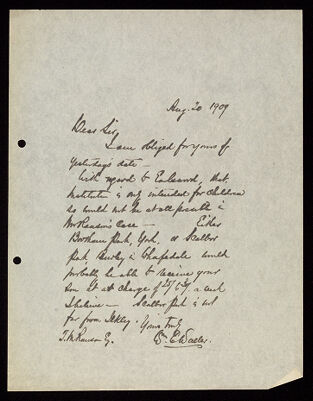 Aug. 20 1909
Dear Sir,
I am obliged for yours of
yesterday's date —
With regard to Earlswood, that
Institution is only intended for children
so would not be at all possible in
Mr Ransom's case — Either
Bootham Park, York, or Scalbor
Park, Burley in Wharfedale would
probably be able to receive your
son at a charge of a week
— Scalbor Park is not
far from Ilkley. Yours truly
T. M. Ransom Esq.